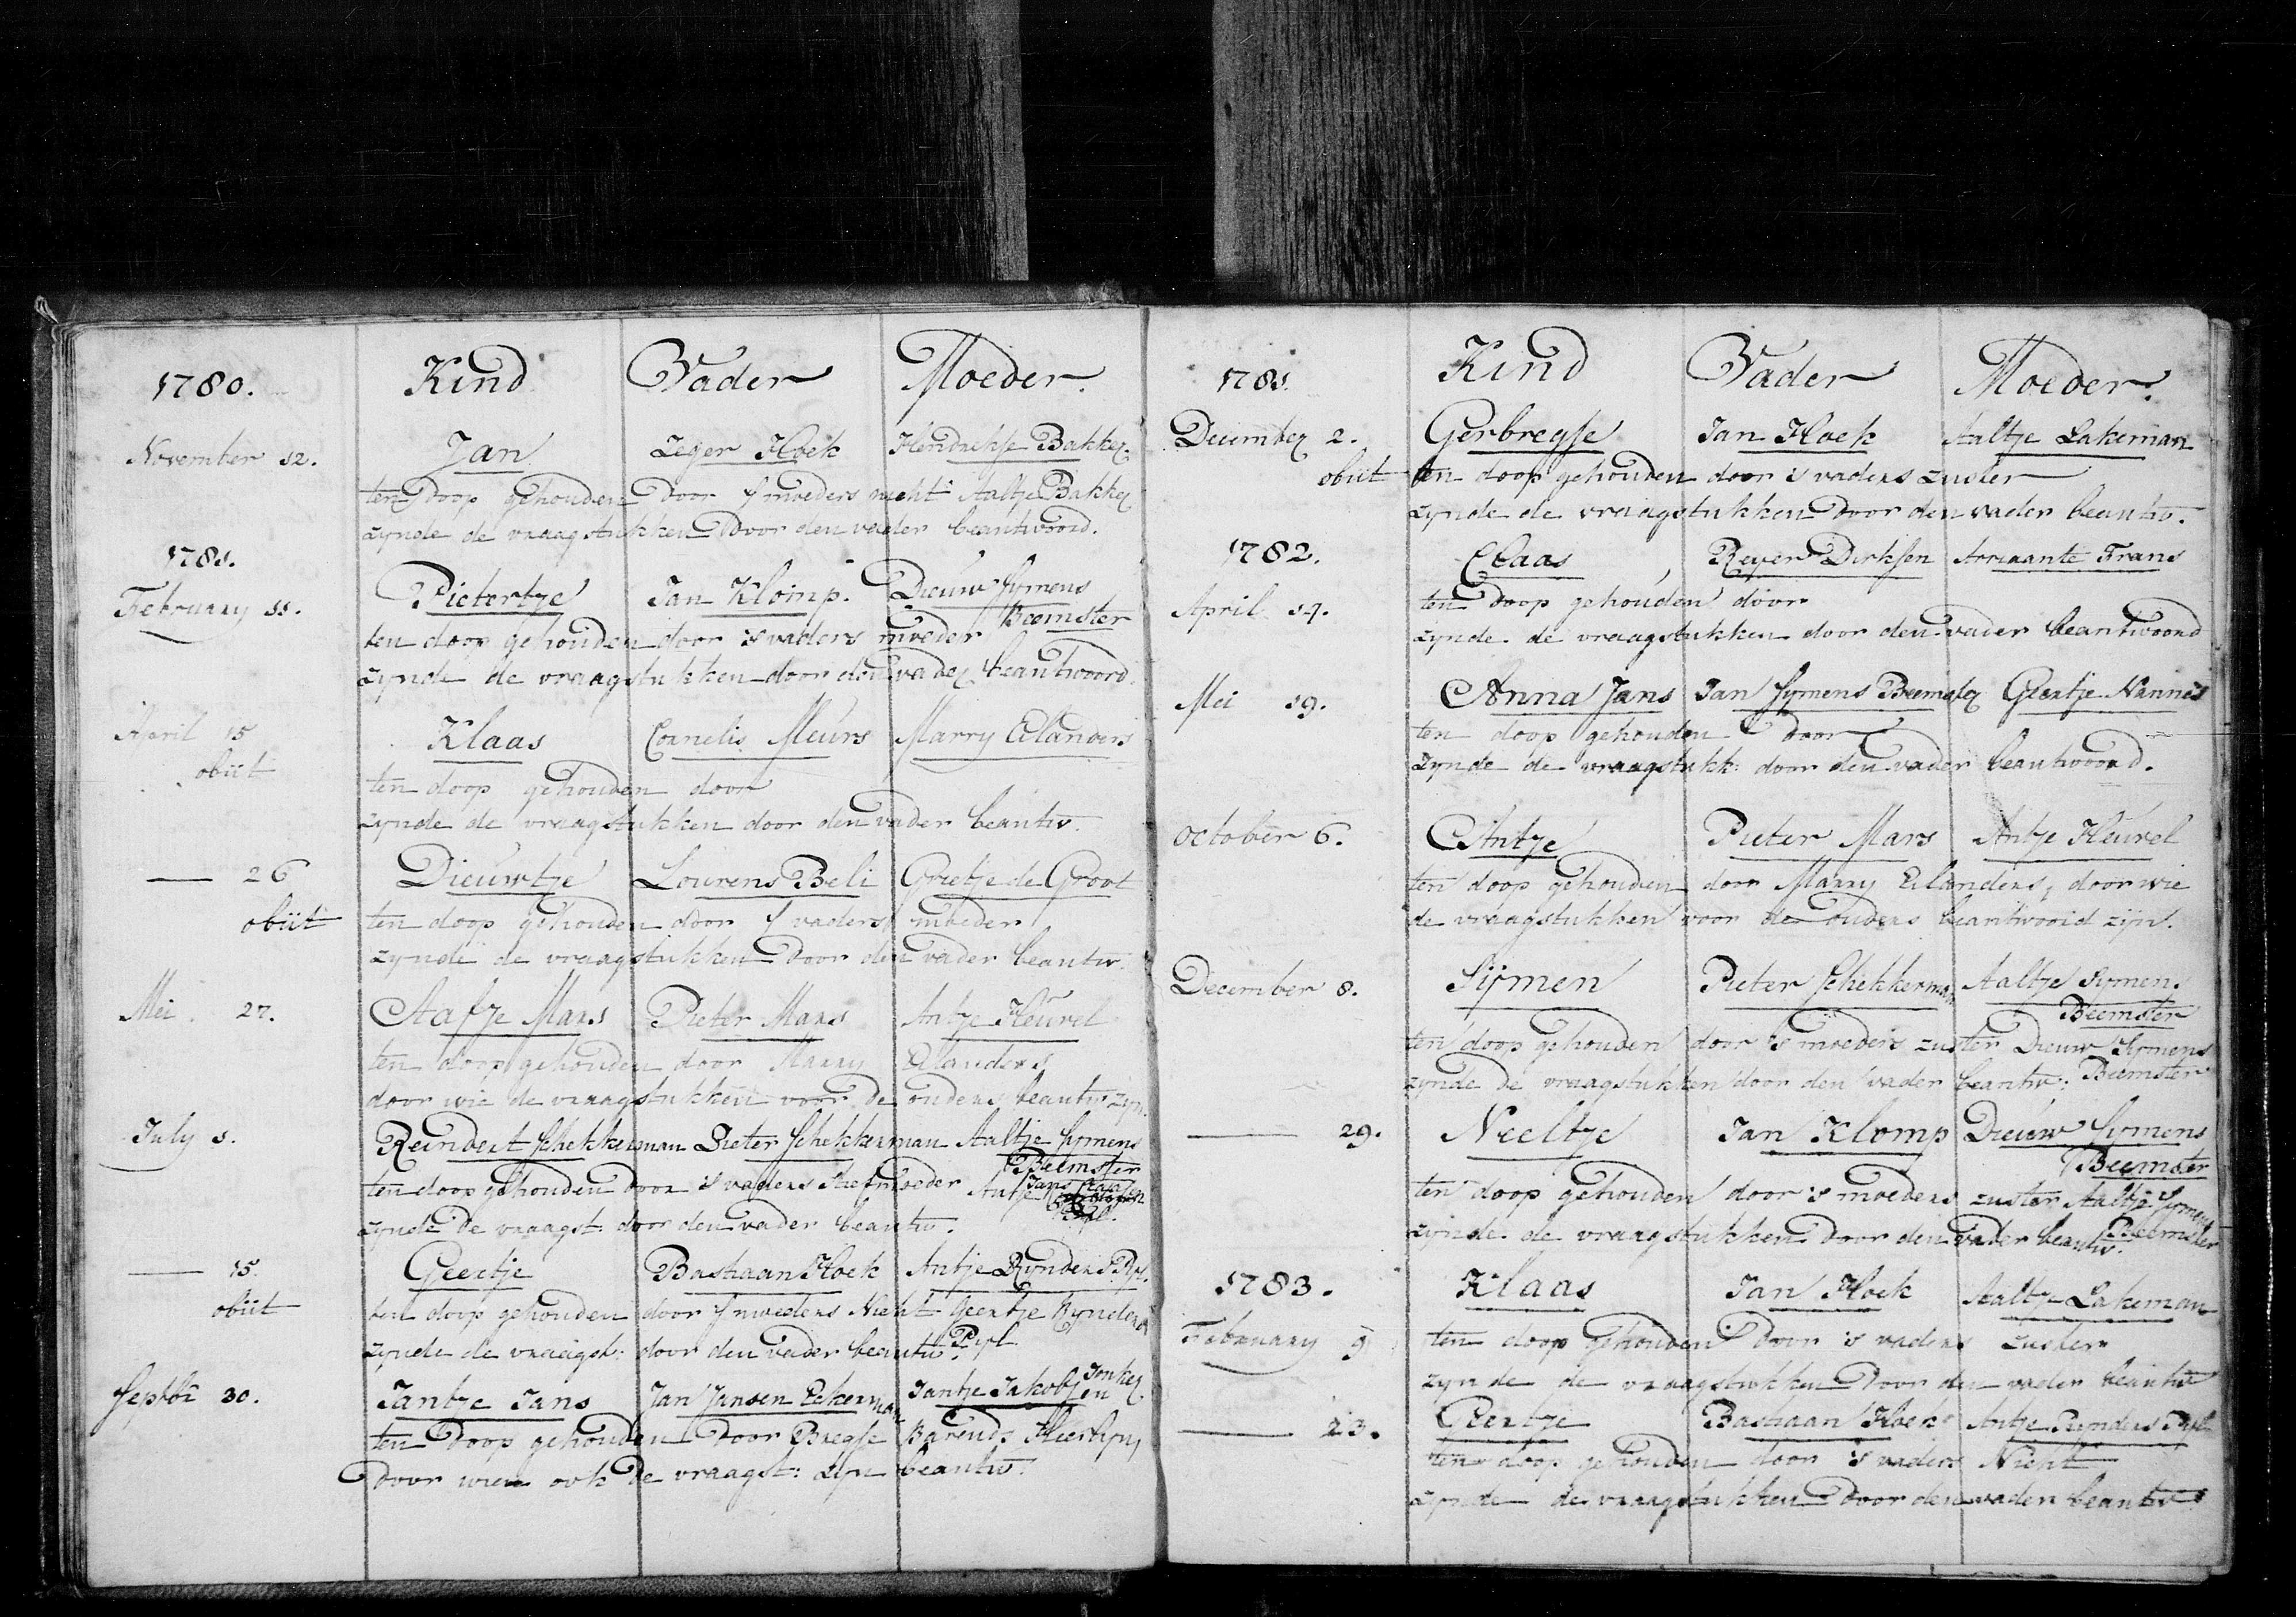 1780. Kind Vader Moeder.
November 12. Jan Zeger Hoek Hendrikse Bakker
ten doop gehouden door s moeders nicht Aaltje Bakker
zynde de vraagstukken door den vader beantwoord.
1781.
February 11. Pietertje Jan Klomp. Dieuw Symens
Beemster
ten doop gehouden door 's vaders moeder
zynde de vraagstukken door den vader beantwoord.
April 15 Klaas Cornelis Meurs Marry Eilanders
obiit
ten doop gehouden door
zynde de vraagstukken door den vader beantw.
— 26 Dieuwtje Lourens Beli Grietje de Groot
obiit ten doop gehouden door s vaders moeder
zynde de vraagstukken door den vader beantw.
Mei 27. Aafje Mars Pieter Mars Antje Heurel
ten doop gehouden door Marry Eilanders
door wie de vraagstukken voor de ouders beantw. zyn.
July 1. Reindert Schekkerman Pieter Schekkerman Aaltje Symens
Beemster
ten doop gehouden door 's vaders stiefmoeder Antje Jans
zynde de vraagst: door den vader beantw.
— 15. Geertje Bastiaan Hoek Antje Rynders Pyl.
obiit
ten doop gehouden door s moeders Nicht Geertje Rynders
Pyl
zynde de vraagst: door den vader beantw.
Septbr 30. Jantje Jans Jan Jansen Ekerman Jantje Jakobsen
Jonker
ten doop gehouden door Bregje Barends Heertjes,
door wien ook de vraagst: zyn beantw.
1781. Kind Vader Moeder.
December 2. Gerbregje Jan Hoek Aaltje Lakeman
obiit ten doop gehouden door 's vaders zuster
zynde de vraagstukken door den vader beantw.
1782. Claas Reyer Dirksen Arriaante Frans
April 14. ten doop gehouden door
zynde de vraagstukken door den vader beantwoord
Mei 19. Anna Jans Jan Symens Beemster Geertje Nannes
ten doop gehouden door
zynde de vraagstukk: door den vader beantwoord.
October 6. Antje Pieter Mars Antje Heurel
ten doop gehouden door Marry Eilanders, door wie
de vraagstukken voor de ouders beantwoord zijn.
December 8. Sijmen Pieter Schekkerman Aaltje Symens
Beemster
ten doop gehouden door 's moeders zuster Dieuw Symens
Beemster
zynde de vraagstukken door den vader beantw:
— 29. Neeltje Jan Klomp Dieuw Symens
Beemster
ten doop gehouden door 's moeders zuster Aaltje Symens
Beemster
zynde de vraagstukken door den vader beantw.
1783. Klaas Jan Hoek Aaltje Lakeman
February 9 ten doop gehouden door 's vaders zuster
zynde de vraagstukken door den vader beantw
— 23. Geertje Bastiaan Hoek Antje Rynders Pyl
ten doop gehouden door 's vaders Nicht
zynde de vraagstukken door den vader beantw